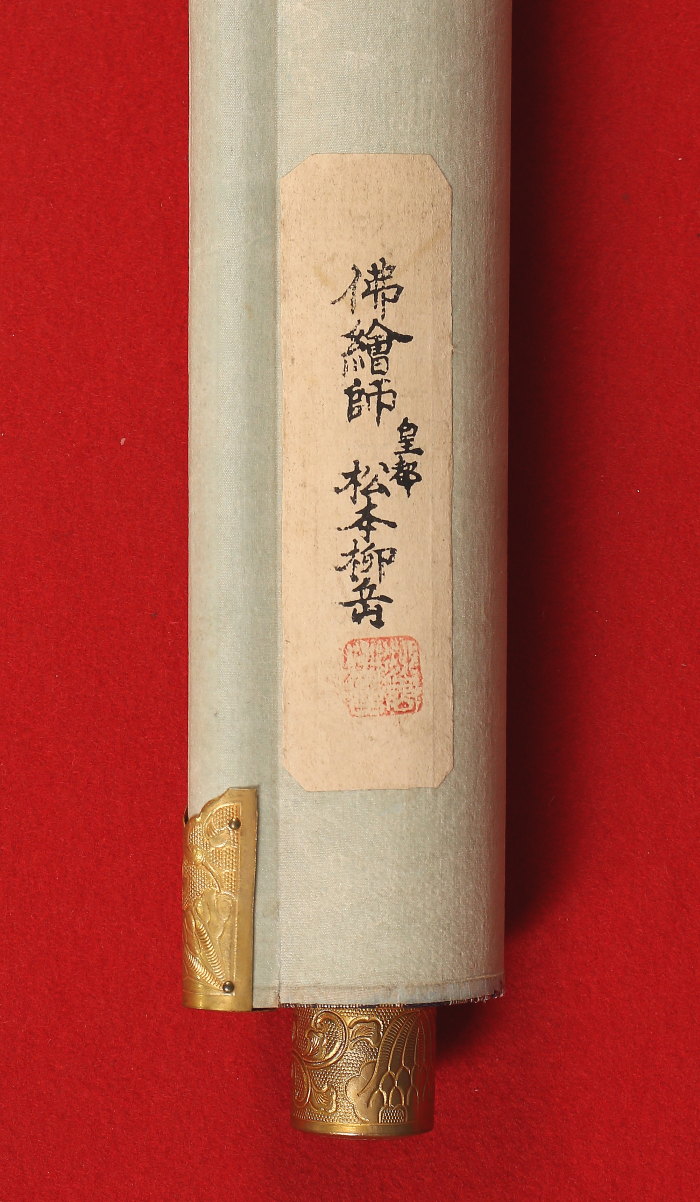 佛繪師
皇都
松本柳岳